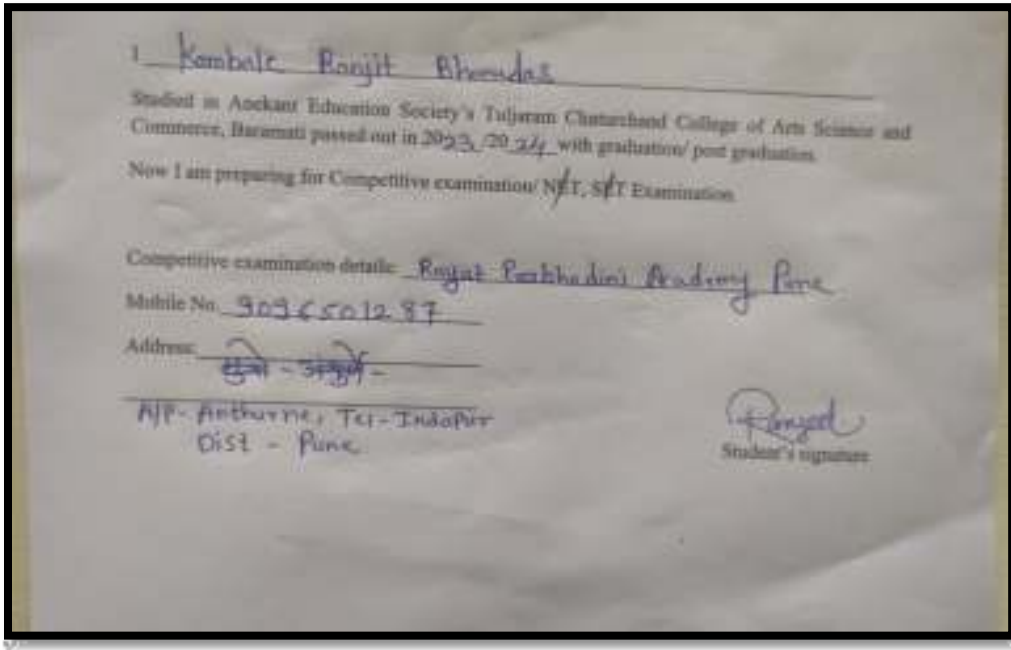 I Kambale Ranjit Bhimdas
Studied in Anekant Education Society's Tuljaram Chaturchand College of Arts Science and
Commerce, Baramati passed out in 2023 /2024 with graduation/ post graduation.
Now I am preparing for Competitive examination/ NET, SET Examination.
Competitive examination details: Rayat Prabhodini Academy Pune
Mobile No. 9096501287
Address:
A/P- Anthurne, Tal- Indapur
Dist - Pune
Ranjeet
Student's signature